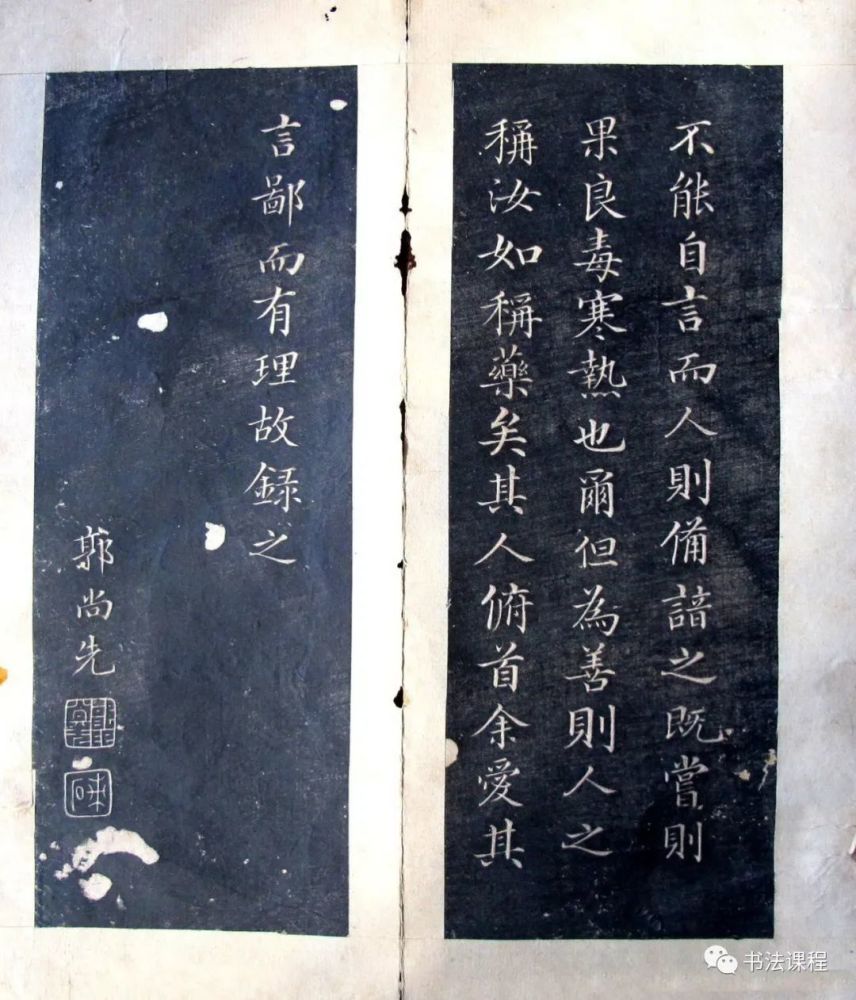 不能自言而人則備諳之既嘗則
果良毒寒熱也爾但為善則人之
稱汝如稱藥矣其人俯首余愛其
言鄙而有理故録之
郭尚先
书法课程